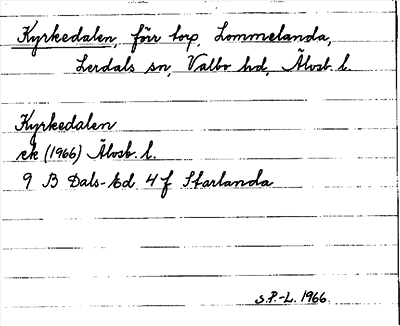 Kyrkedalen, förr torp, Lommelanda,
Lerdals sn, Valbo hd, Älvsb. l.
Kyrkedalen
ek (1966) Älvsb. l.
9 B Dals-Ed 4 f Starlanda
S.P.-L. 1966.